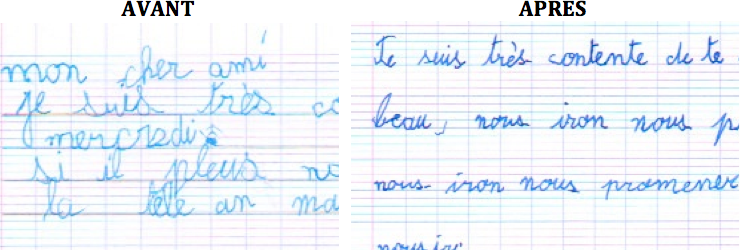 AVANT
APRÈS
mon cher ami
je suis très co
mercredi
si il pleus no
la télé an ma
Je suis très contente de te
beau, nous iron nous p
nous iron nous promener